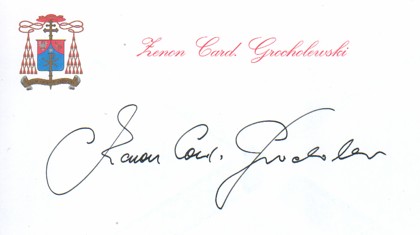 Zenon Card. Grocholewski
Zenon Card. Grocholewski